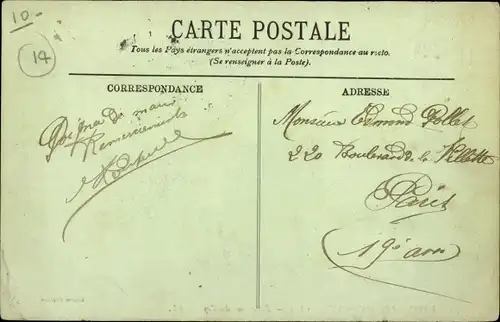 10
14
CARTE POSTALE
Tous les Pays étrangers n'acceptent pas la Correspondance au recto.
(Se renseigner à la Poste).
CORRESPONDANCE
ADRESSE
Poignée de main
Remerciements
Monsieur Edmond Pollet
220 Boulevard de la Villette
Paris
(19e arr)